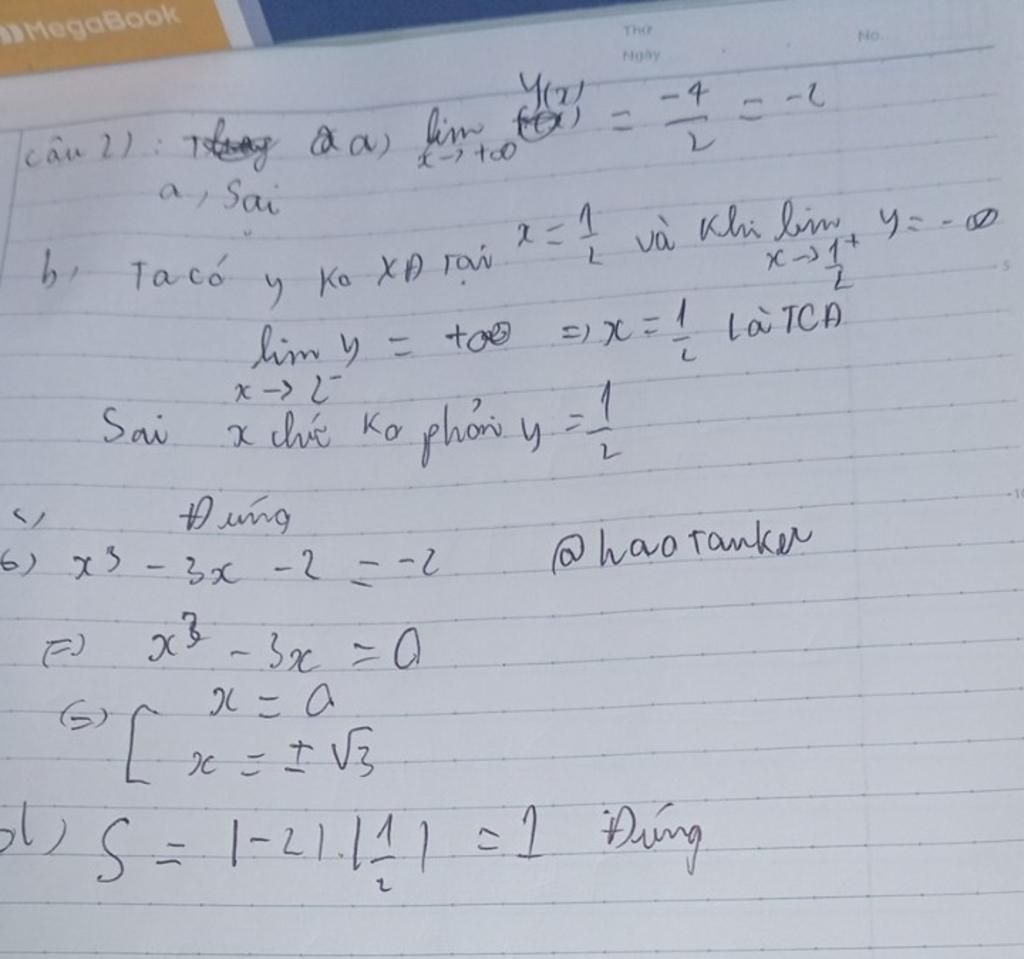 MegaBook
Thứ
Ngày
No.
Câu 2): a) lim x→+∞ y(x) = -4/2 = -2
a, Sai
b, Ta có y ko XĐ tại x = 1/2 và khi lim x→1/2+ y = -∞
lim x→2- y = +∞ => x = 1/2 là TCĐ
Sai x chứ ko phải y = 1/2
c, Đúng
6) x³ - 3x - 2 = -2 @haotanker
=> x³ - 3x = 0
(=) [ x = 0
x = ± √3
d) S = |-2|.|1/2| = 1 Đúng